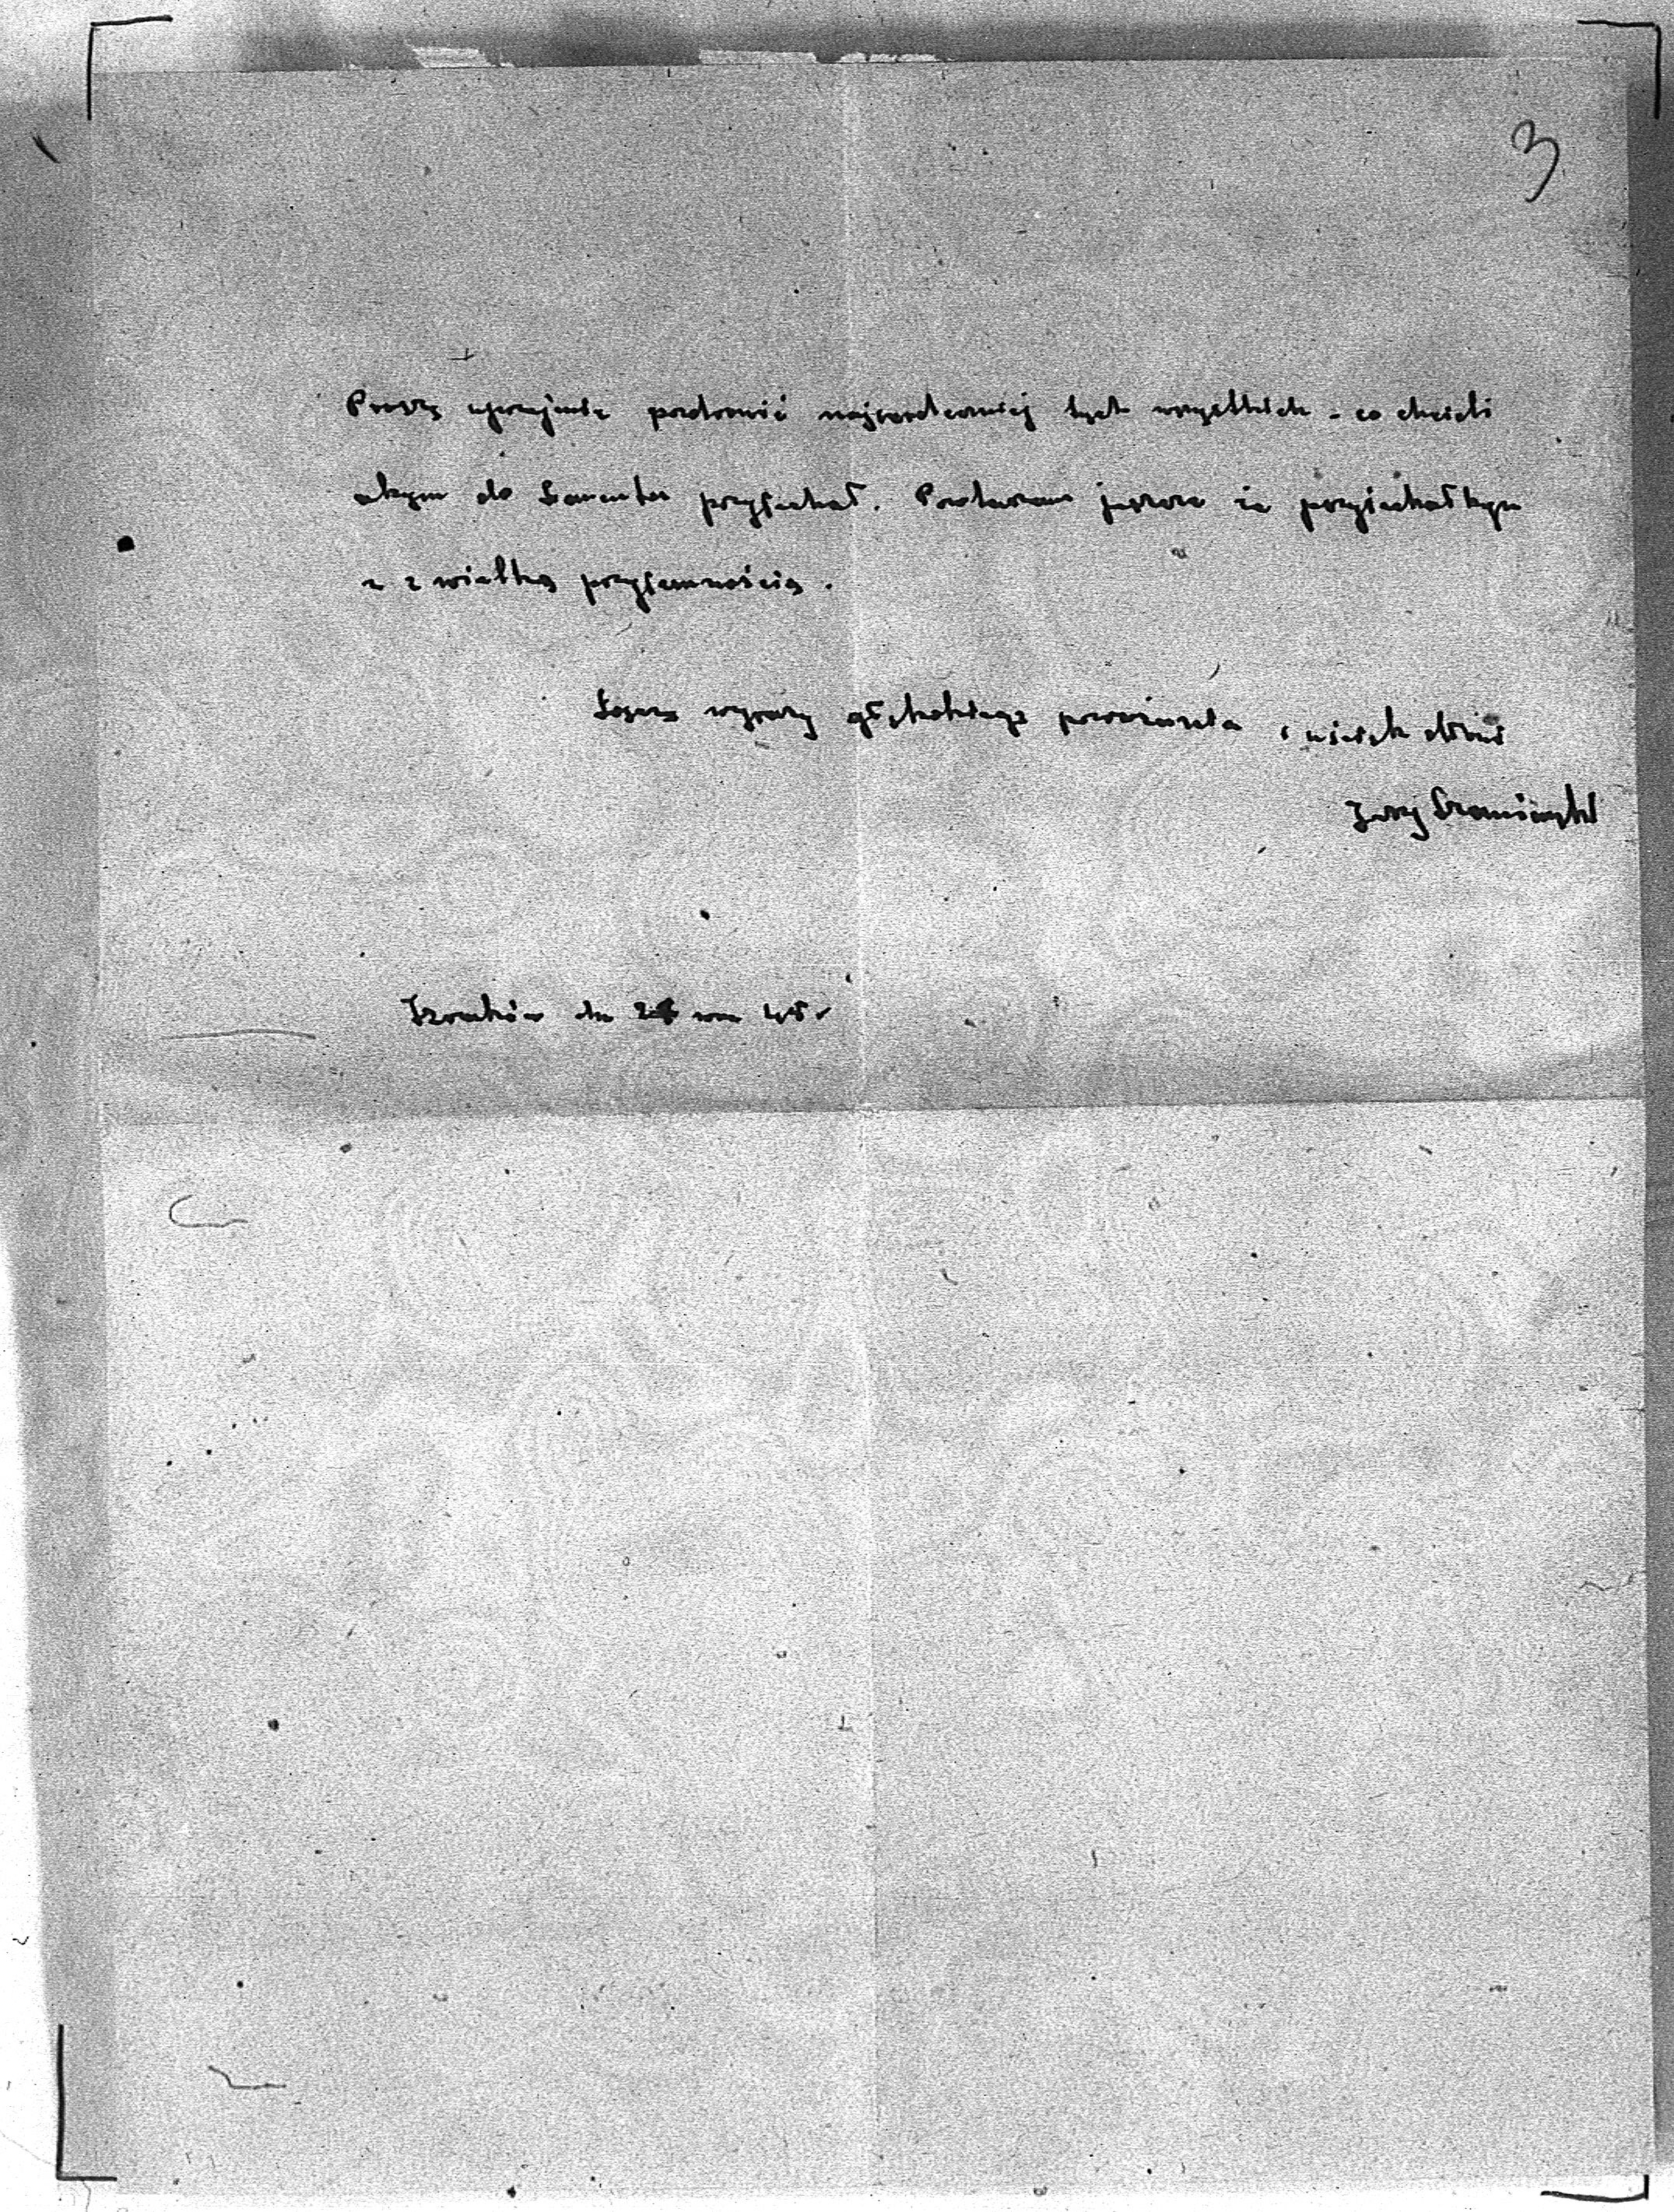 3
Proszę uprzejmie pozdrowić najserdeczniej tych wszystkich - co chcieli
abym do przyjechał. Powtarzam jeszcze że przyjechałbym
z wielką przyjemnością.
Łączę wyrazy głębokiego poważania i uścisk dłoni
Jerzy Szaniawski
Kraków dn